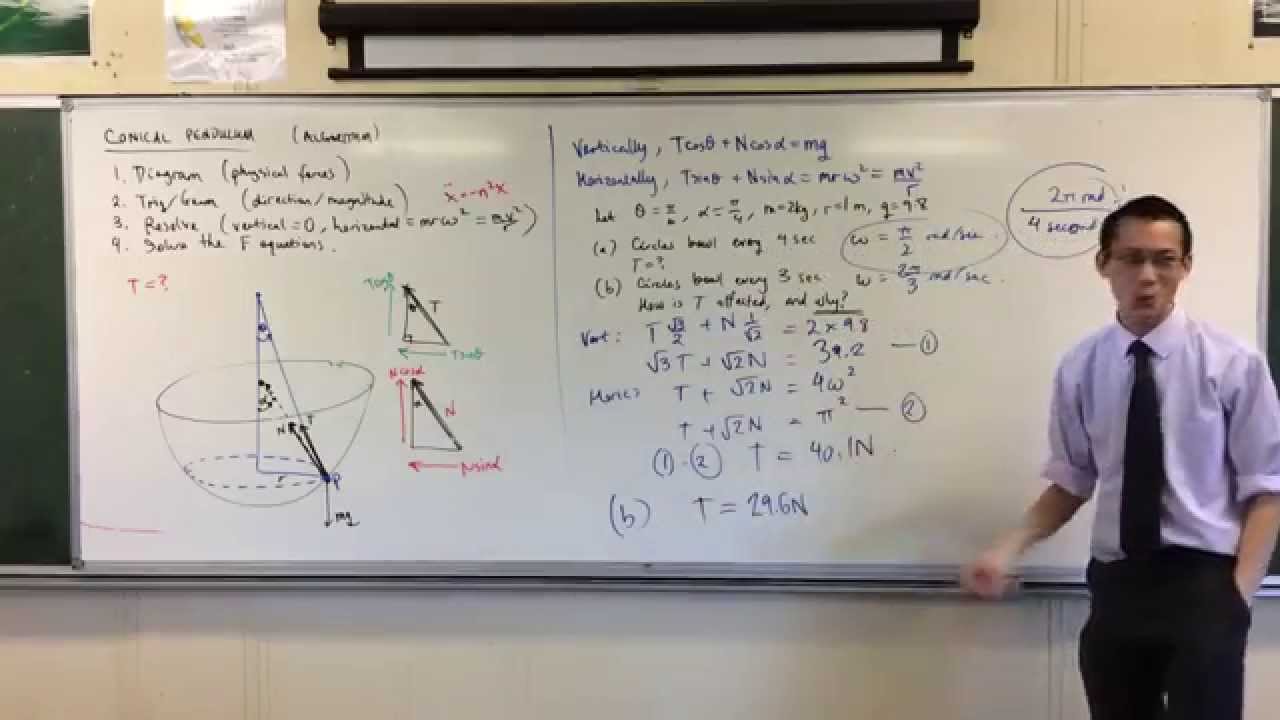 CONICAL PENDULUM (ALGORITHM)
1. Diagram (physical forces)
2. Trig/Geom (direction/magnitude)
ẍ = -n²x
3. Resolve (vertical = 0, horizontal = mrω² = mv²/r)
4. Solve the F equations.
T = ?
Tcosθ
T
Tsinθ
Ncosα
α
N
Nsinα
θ
α
N
T
r
P
mg
Vertically, Tcosθ + Ncosα = mg
Horizontally, Tsinθ + Nsinα = mrω² = mv²/r
Let θ = π/6, α = π/4, m = 2kg, r = 1m, g = 9.8
(a) Circles bowl every 4 sec ω = π/2 rad/sec.
T = ?
(b) Circles bowl every 3 sec ω = 2π/3 rad/sec.
How is T affected, and why?
Vert: T √3/2 + N 1/√2 = 2 × 9.8
√3T + √2N = 39.2 — ①
Horiz: T + √2N = 4ω²
T + √2N = π² — ②
① - ② T = 40.1N
(b) T = 29.6N
2π rad
4 second